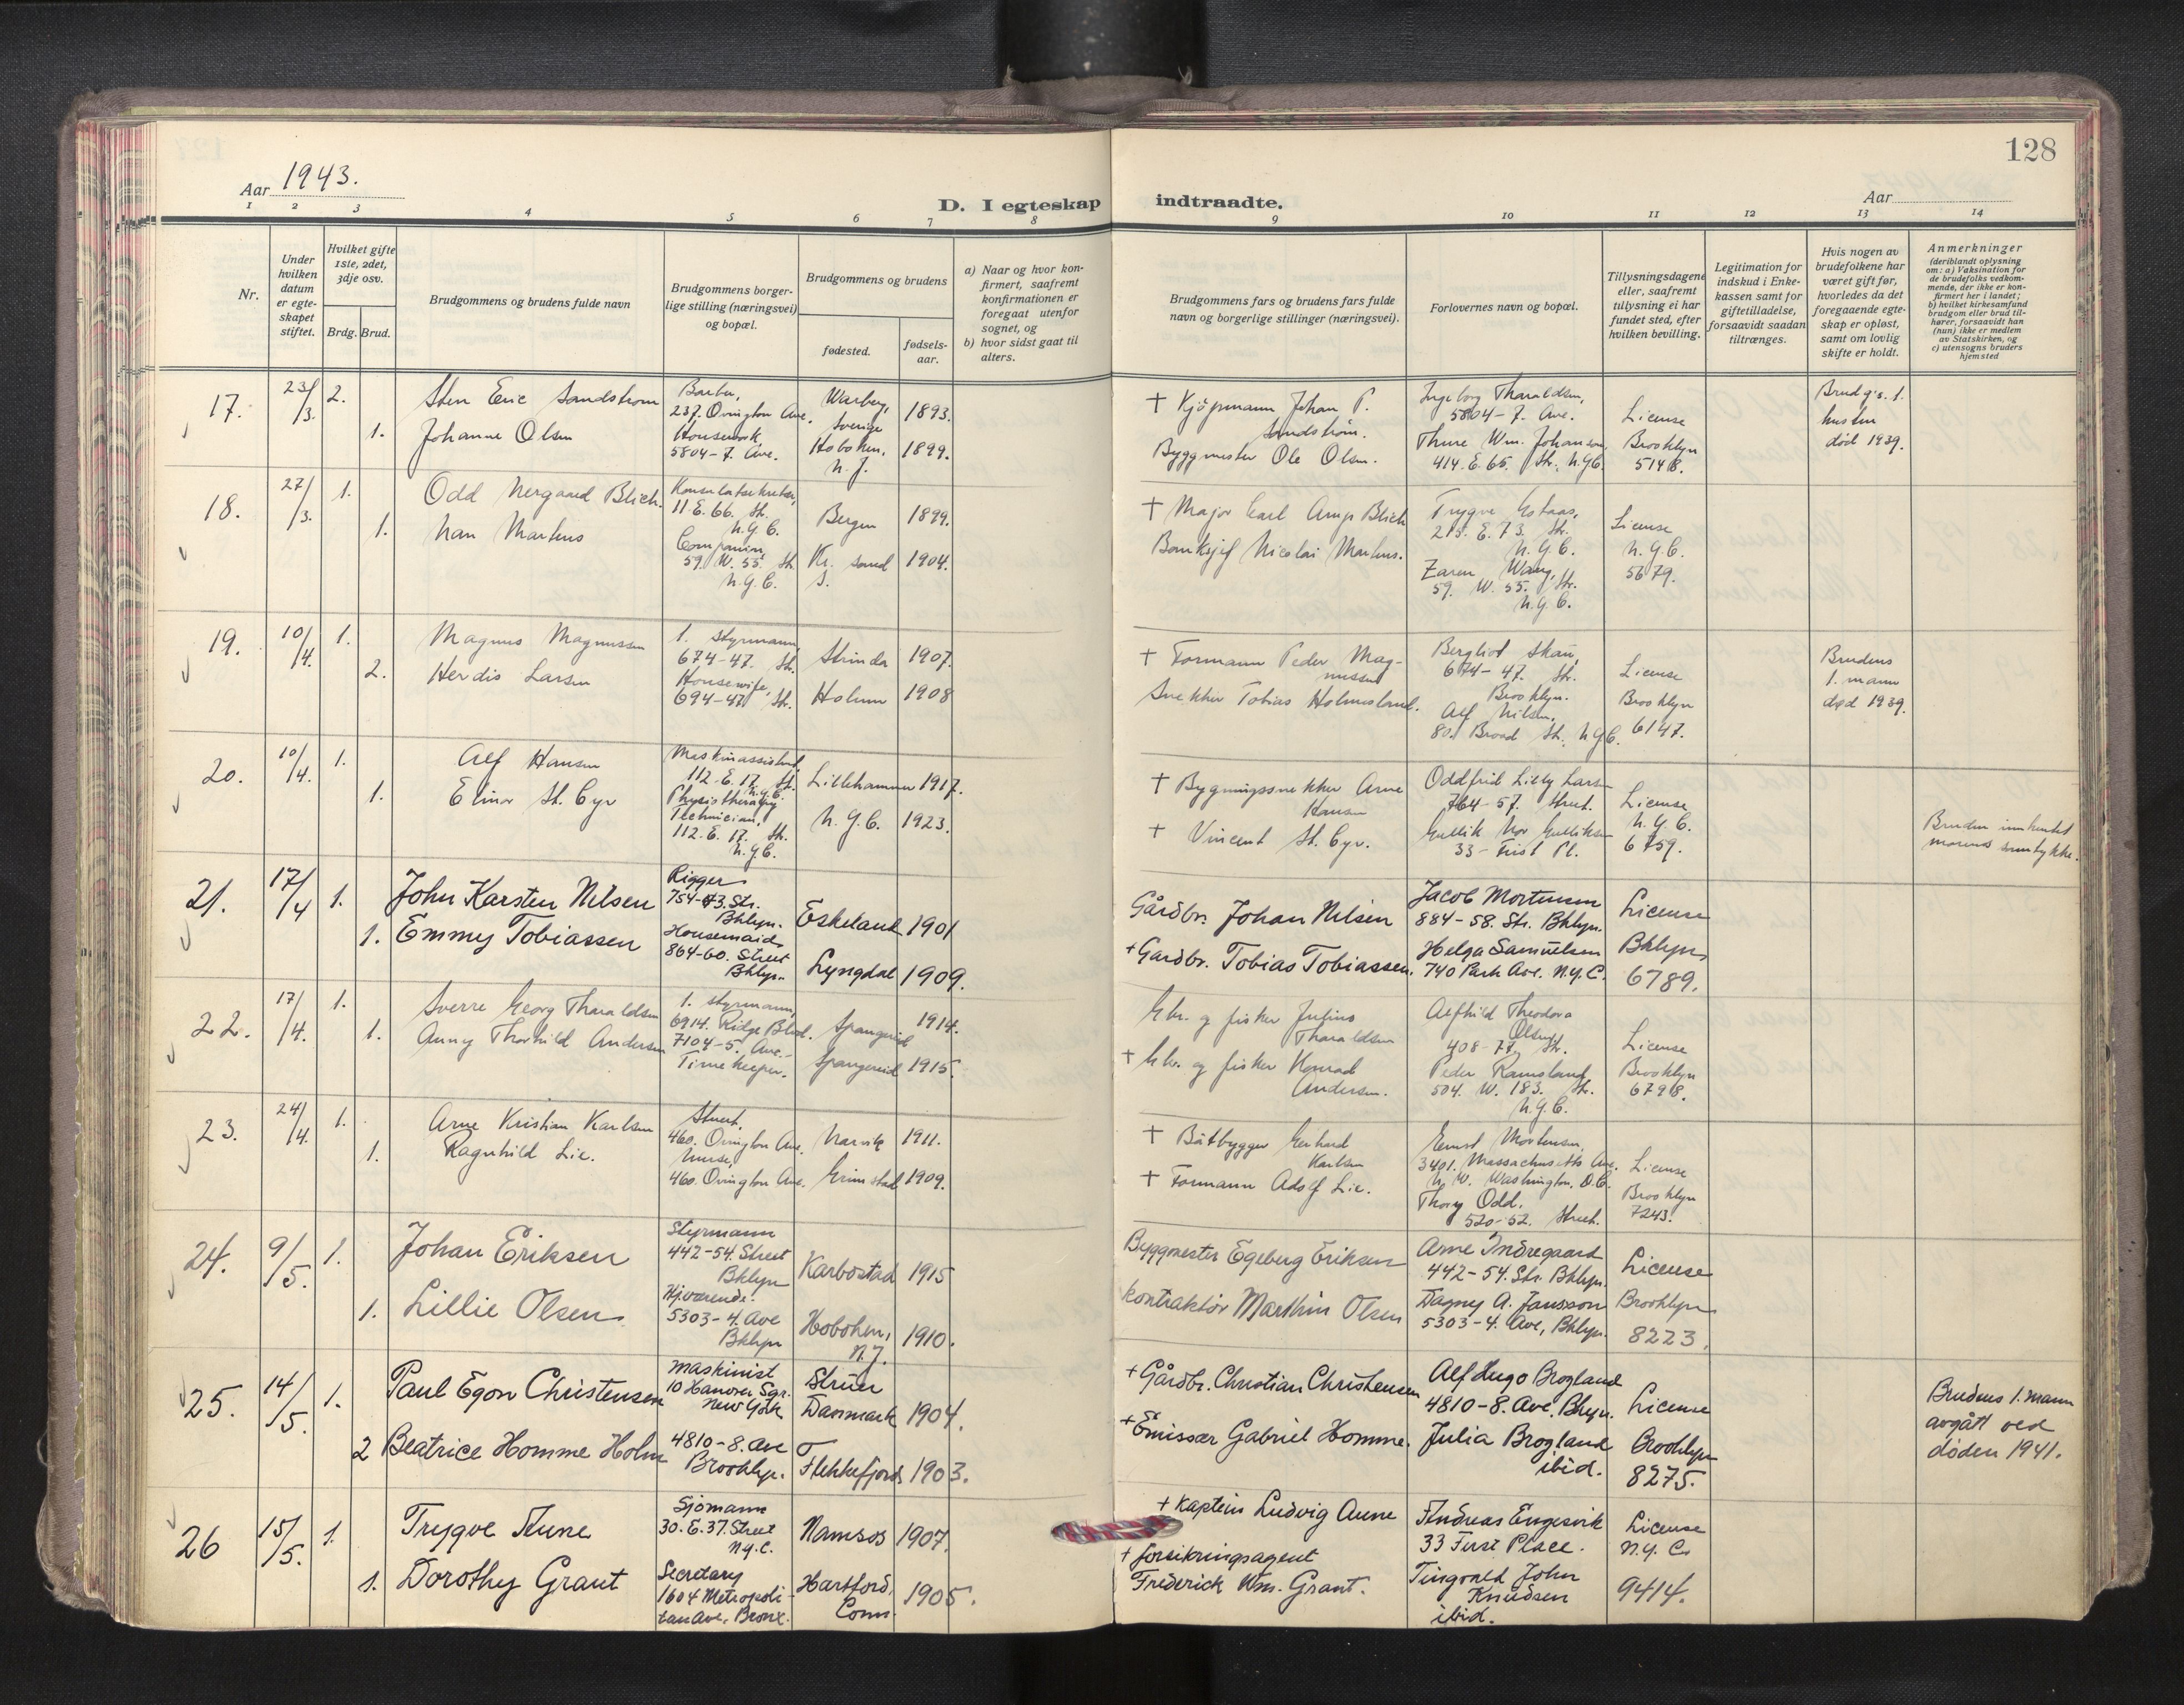 128
Aar 1943.
D. I egteskap indtraadte.
Aar
1 2 3 4 5 6 7 8 9 10 11 12 13 14
Nr.
Under hvilken datum er egteskapet stiftet.
Hvilket gifte 1ste, 2det, 3dje osv.
Brdg. Brud.
Brudgommens og brudens fulde navn
Brudgommens borgerlige stilling (næringsvei) og bopæl.
Brudgommens og brudens
fødested.
fødselsaar.
a) Naar og hvor konfirmert, saafremt konfirmationen er foregaat utenfor sognet, og
b) hvor sidst gaat til alters.
Brudgommens fars og brudens fars fulde navn og borgerlige stillinger (næringsvei).
Forlovernes navn og bopæl.
Tillysningsdagene eller, saafremt tillysning ei har fundet sted, efter hvilken bevilling.
Legitimation for indskud i Enkekassen samt for giftetilladelse, forsaavidt saadan tiltrænges.
Hvis nogen av brudefolkene har været gift før, hvorledes da det foregaaende egteskap er opløst, samt om lovlig skifte er holdt.
Anmerkninger (deriblandt oplysning om: a) Vaksination for de brudefolks vedkommende, der ikke er konfirmert her i landet; b) hvilket kirkesamfund brudgom eller brud tilhører, forsaavidt han (hun) ikke er medlem av Statskirken, og c) utensogns bruders hjemsted
17. 23/3. 2.
Sten Eric Sandstrom
Barber,
237. Ovington Ave.
Warberg, Sverige
1893.
1. Johanne Olsen
Housework,
5804-7. Ave.
Hoboken, N.J.
1899.
+ Kjöpmann Johan P. Sandström.
Byggmester Ole Olsen.
Ingeborg Tharaldsen,
5804-7. Ave.
Thure Wm. Johanson,
414. E. 65. Str. N.Y.C.
License
Brooklyn
5148.
Brudg's. 1. hustru
død 1939.
18. 27/3. 1.
Odd Nergaard Blich.
11 E. 66. St.
N.Y.C.
Bergen
1899.
1. Nan Martens
Companion,
59. W. 55. St.
N.Y.C.
Kr. sand S.
1904.
+ Major Carl Blich
Banksjef Nicolai Martens.
213. E. 73. Str.
N.Y.C.
59. W. 55. Str.
N.Y.C.
License
N.Y.C.
5679.
19. 10/4. 1.
Magnus Magnussen
1. styrmann,
674-47. St.
Strinda
1907.
2. Herdis Larsen
Housewife,
694-47. St.
Holum
1908
+ Formann Peder Magnussen
Snekker Tobias Holmesland.
Bergliot Skau,
674-47. Str.
Brooklyn.
Alf Nilsen,
80. Broad St., N.Y.C.
License
Brooklyn
6147.
Brudens
1. mann
død 1939.
20. 10/4. 1.
Alf Hansen
Maskinassistent
112. E. 17. St.
N.Y.C.
Lillehammer 1917.
1. Elinor St. Cyr
Physiotherapy Technician.
112. E. 17. St.
N.Y.C.
N.Y.C. 1923.
+ Bygningssnekker Arne Hansen
+ Vincent St. Cyr.
Oddfrid Lilly Larsen
764-57. Street.
Gullik Nor Gulliksen
33-First Pl.
License
N.Y.C.
6759.
Bruden innhentet
morens samtykke.
21. 17/4 1.
John Karsten Nilsen
Rigger
754-43. Str.
Bklyn.
Eskeland 1901
1. Emmy Tobiassen
Housemaid
864-60. Street
Bklyn.
Lyngdal 1909.
Gårdbr. Johan Nilsen
+ Gardbr. Tobias Tobiassen.
Jacob Mortensen
884-58. Str. Bklyn.
Helga Samuelsen
740 Park Ave. N.Y.C.
License
Bklyn.
6789.
22. 17/4. 1.
Sverre Georg Tharaldsen
1. styrmann,
6914. Ridge Blvd.
Spangereid
1914.
1. Anny Thorhild Andersen
7104-5. Ave.-
Timekeeper.
Spangereid 1915.
Gbr. og fisker Julius Tharaldsen
+ Gbr. og fisker Konrad Andersen.
Alfhild Theodora Olsen,
408-77. Str.
Peder Ramsland
504. W. 183. Str.
N.Y.C.
License
Brooklyn
6798.
23. 24/4. 1.
Arne Kristian Karlsen
460. Ovington Ave.
Narvik 1911.
1. Ragnhild Lie.
Nurse,
460. Ovington Ave.
Grimstad 1909.
+ Båtbygger Gerhard Karlsen
+ Formann Adolf Lie.
Ernst Mortensen,
3401. Massachusetts Ave.
N.W. Washington. D.C.
Thory Odd.
520-52. Street.
License
Brooklyn
7243.
24. 9/5. 1.
Johan Eriksen
Styrmann
442-54. Street
Bklyn
Karbostad 1915
1. Lillie Olsen.
Hj.værende.
5303-4. Ave
Bklyn
Hoboken, N.J.
1910.
Byggmester Egeberg Eriksen
Kontraktör Marthin Olsen
Arne Indregaard
442-54. Str. Bklyn.
Dagny A. Jansson
5303-4. Ave, Bklyn.
License
Brooklyn
8223.
25. 14/5. 1.
Paul Egon Christensen
Maskinist
10 Hanover Sqr.
New York
Struer
Danmark 1904.
2 Beatrice Homme Holm
4810-8. Ave
Brooklyn.
Flekkefjord 1903.
+ Gårdbr. Christian Christensen
+ Emissær Gabriel Homme.
Alf Hugo Brogland
4810-8. Ave. Bklyn.
Julia Brogland
ibid.
License
Brooklyn
8275.
Brudens 1. mann
avgått ved
döden 1941.
26 15/5. 1.
Trygve Aune
Sjömann
30. E. 37. Street
N.Y.C.
Namsos 1907.
1. Dorothy Grant
Secretary
1604 Metropoli-
tan Ave, Bronx.
Hartford, Conn.
1905.
+ Kaptein Ludvig Aune
+ forsikringsagent
Frederick Wm. Grant.
Andreas Engesvik
33 First Place.
Tingvald John
Knudsen
ibid.
License
N.Y.C.
9414.